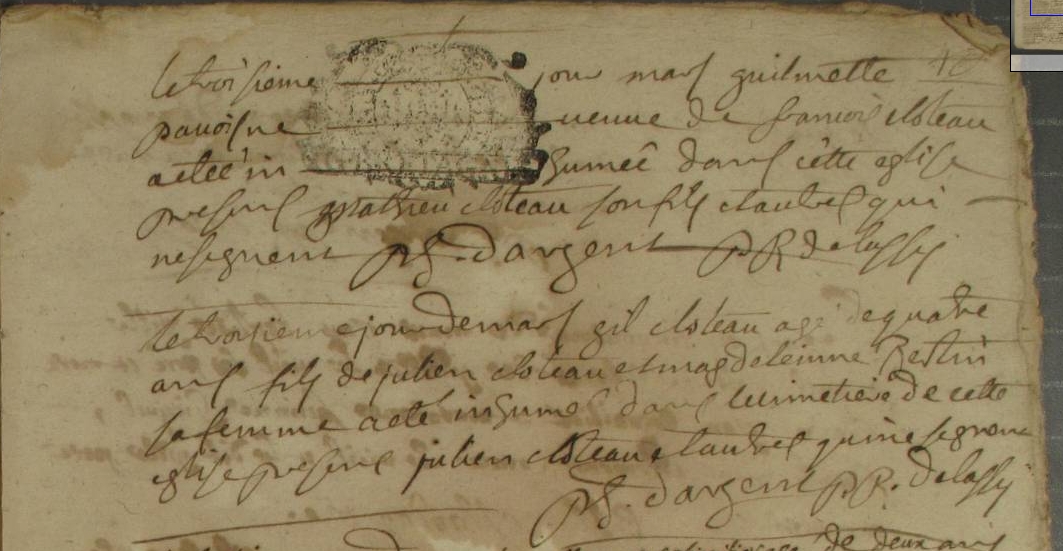 le troisieme jour mars guilmette
pauoisne ueuue de francois cloteau
a étée in humeé dans cétte eglise
presens mathieu cloteau son fils et autres qui
ne signent d'argent P R delassy
le troisieme jour de mars gil cloteau agé de quatre
ans fils de julien cloteau et magdeleinne
sa femme a eté inhumé dans le cimetiere de cette
eglise presens julien cloteau et autres qui ne signent
d'argent P R. delassy
de deux ans